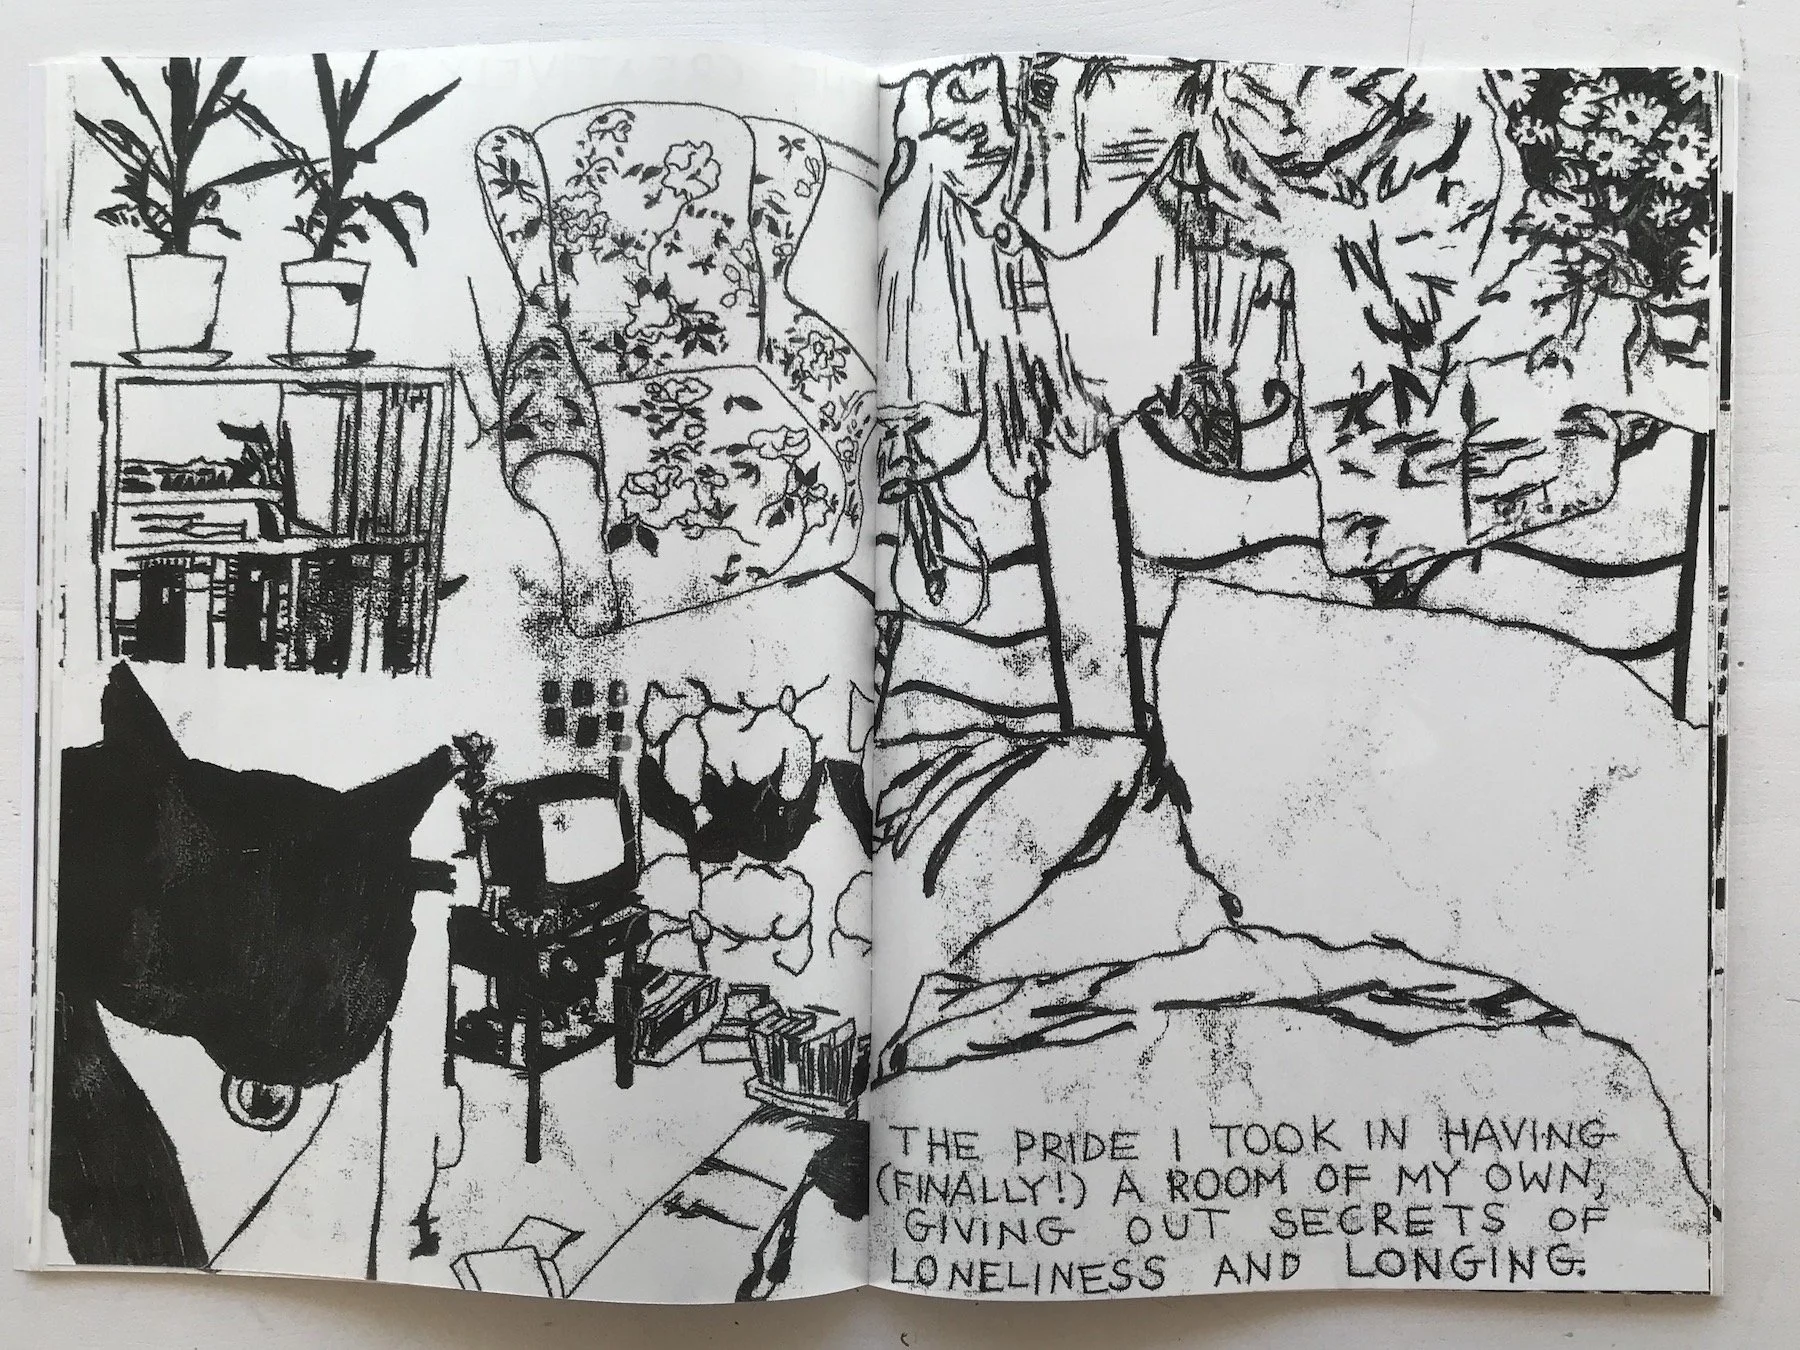 THE PRIDE I TOOK IN HAVING
(FINALLY!) A ROOM OF MY OWN,
GIVING OUT SECRETS OF
LONELINESS AND LONGING.